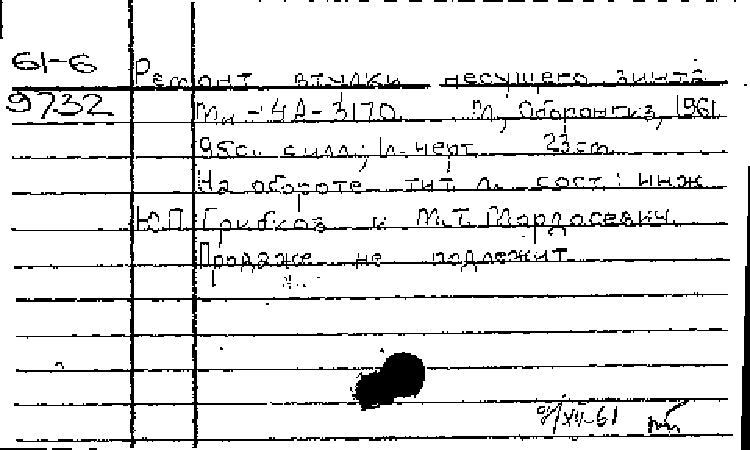 61-6
Ремонт втулки несущего винта
9732
Ми-4А-3170. М., Оборонгиз, 1961
95с. с илл.; 1 л. черт. 23 см.
На обороте тит. л. сост.: инж.
Ю.П. Грибков и М.Т. Мордасевич.
Продаже не подлежит
9/XII-61